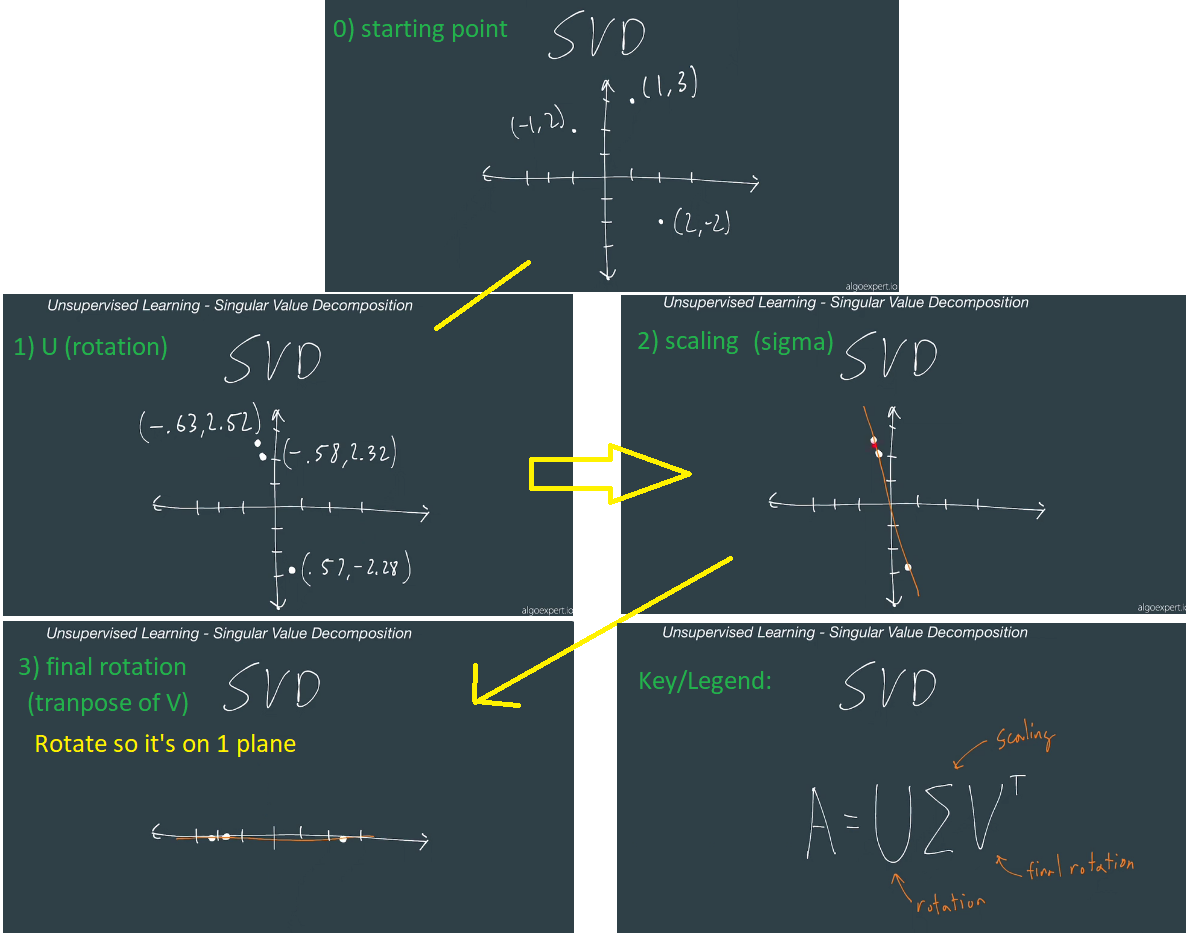 0) starting point
SVD
(1,3)
(-1,2)
(2,-2)
algoexpert.io
Unsupervised Learning - Singular Value Decomposition
1) U (rotation)
SVD
(-.63,2.52)
(-.58,2.32)
(.57,-2.28)
algoexpert.io
Unsupervised Learning - Singular Value Decomposition
2) scaling (sigma)
SVD
algoexpert.io
Unsupervised Learning - Singular Value Decomposition
3) final rotation
(tranpose of V)
SVD
Rotate so it's on 1 plane
Unsupervised Learning - Singular Value Decomposition
Key/Legend:
SVD
scaling
A=UΣV^T
final rotation
rotation